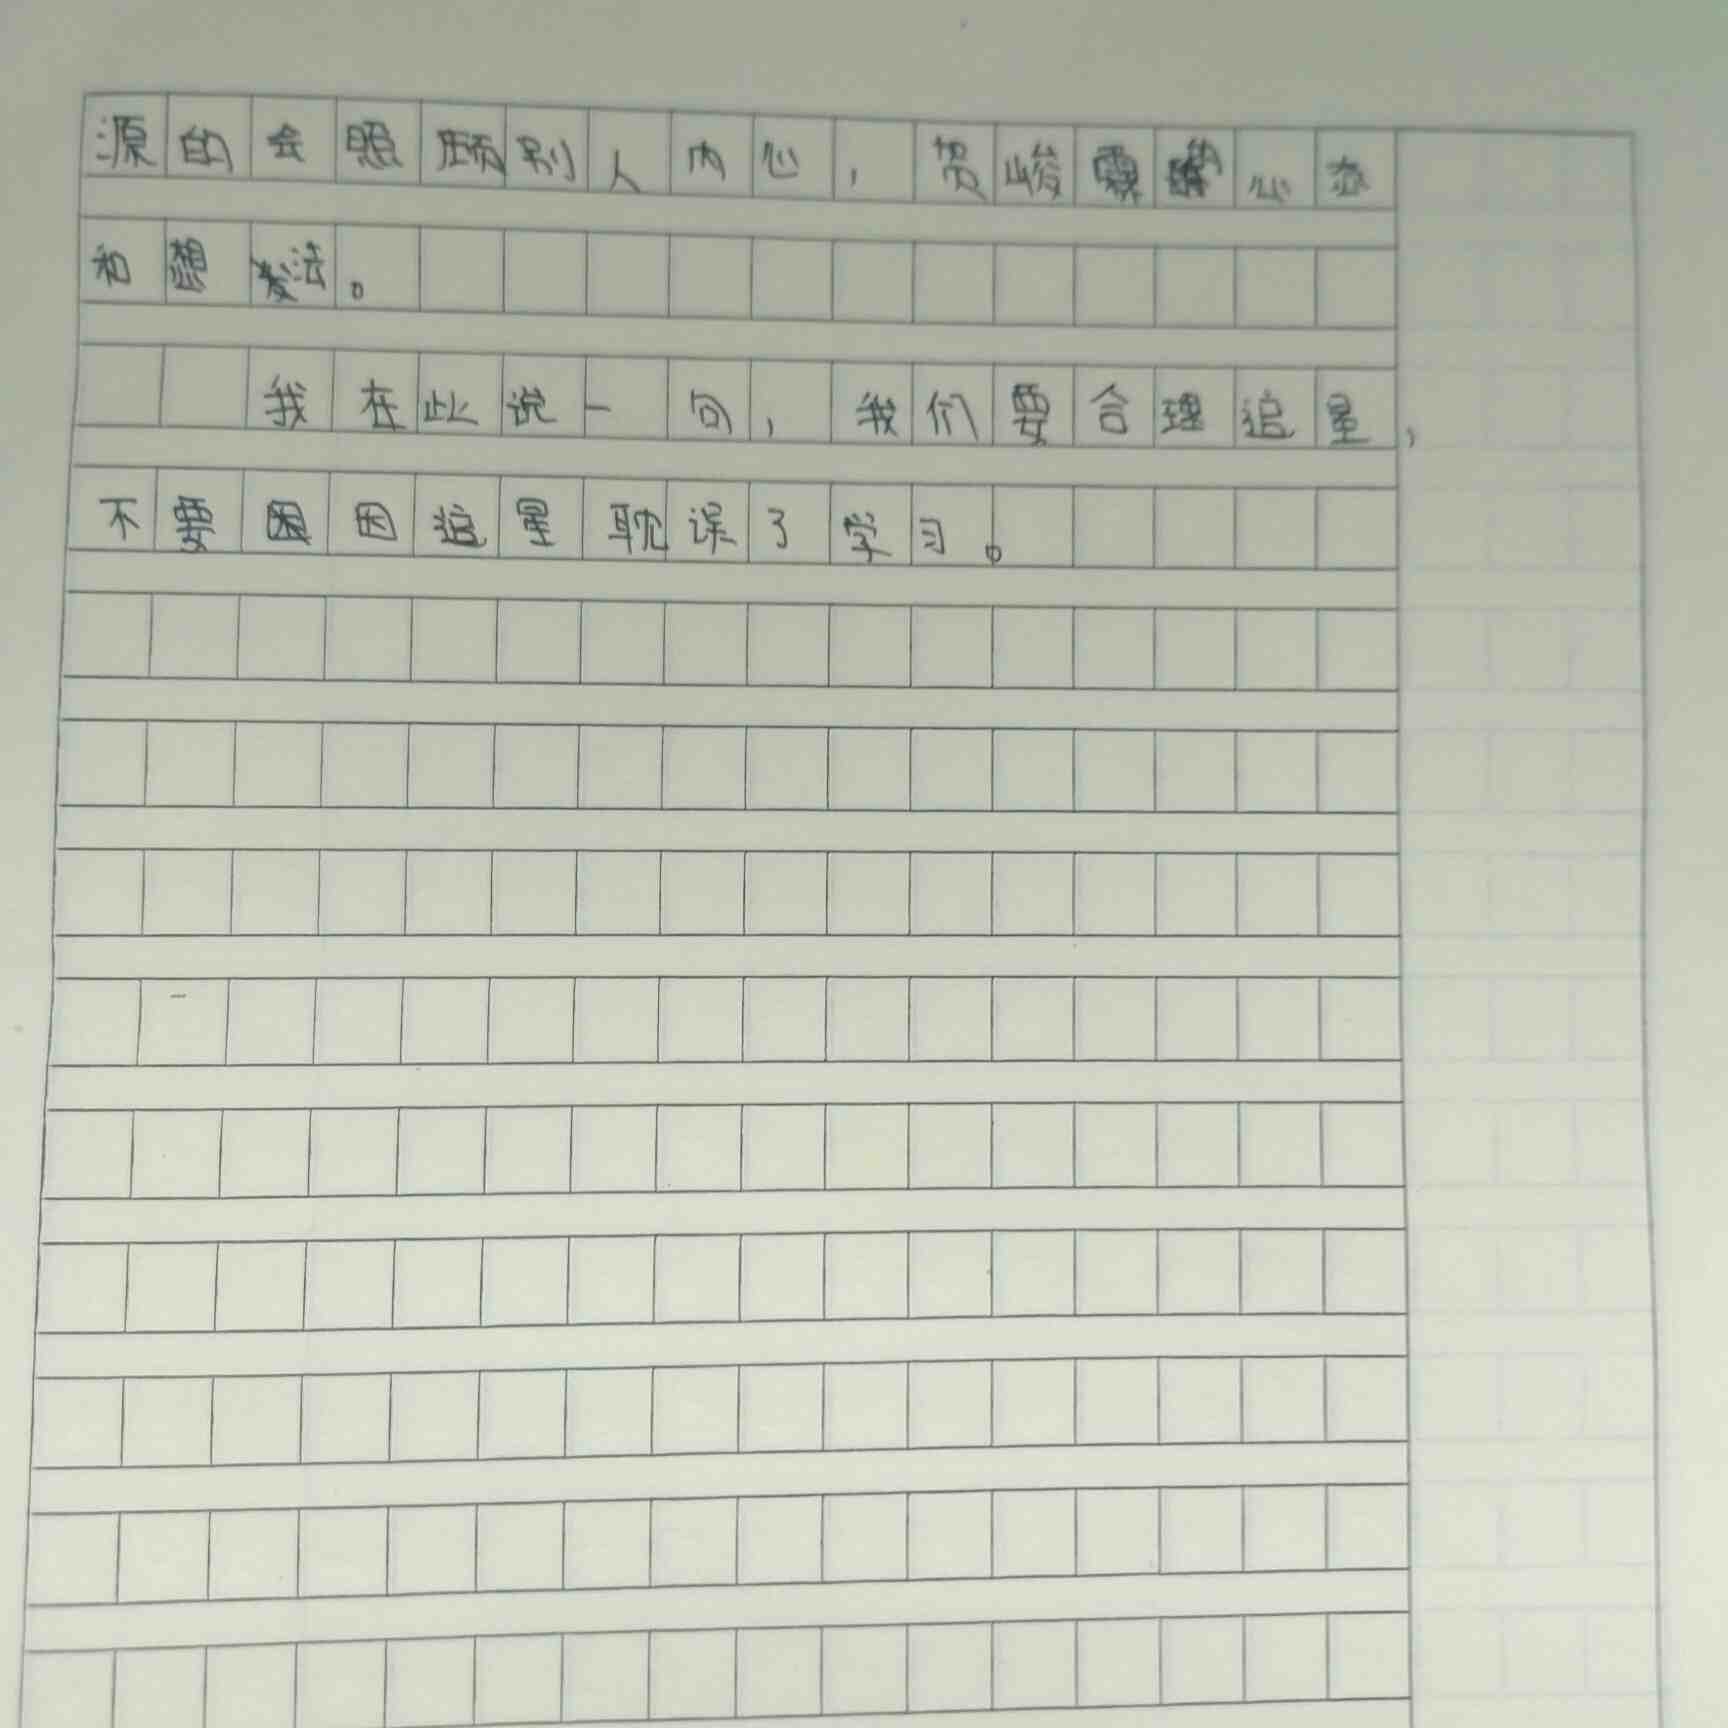 源的会照顾别人内心，贺峻霖的心态
和想法。
我在此说一句，我们要合理追星，
不要因追星耽误了学习。